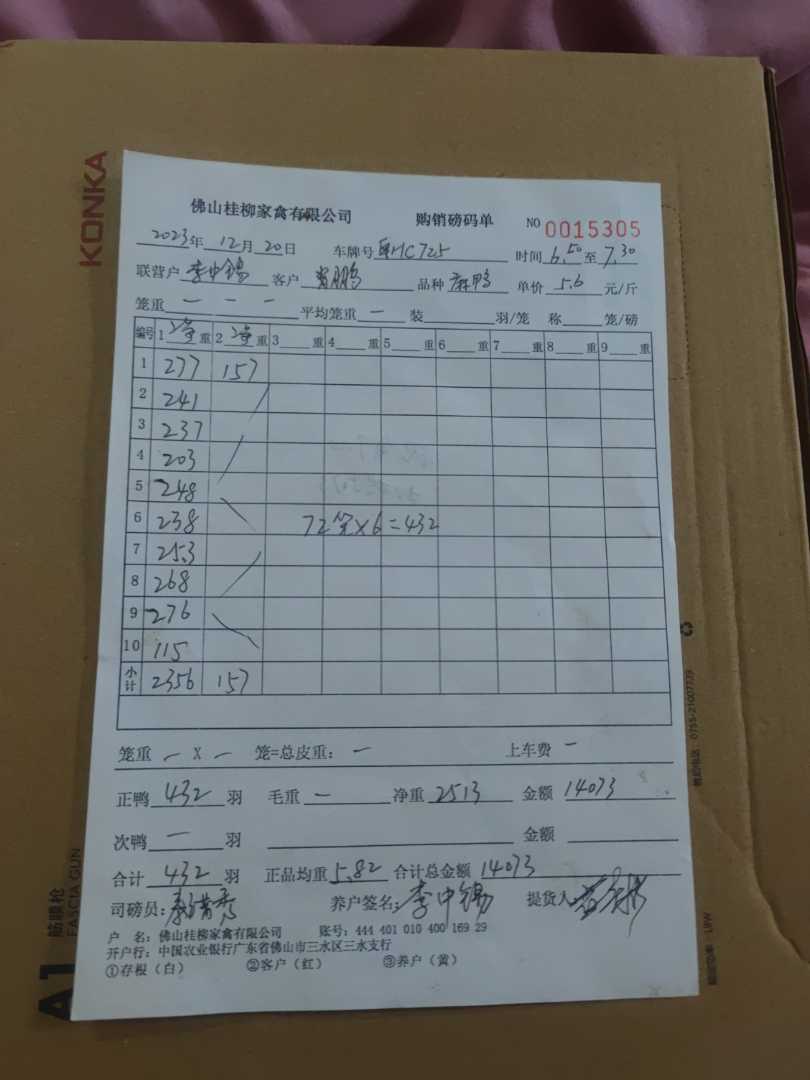 KONKA
佛山桂柳家禽有限公司 购销磅码单 NO 0015305
2023年 12月 20日 车牌号 MC725 时间 6.50 至 7.30
联营户 李中锡 客户 鹏 品种 麻鸭 单价 5.6 元/斤
笼重 — — — 平均笼重 — 装 羽/笼 称 笼/磅
编号 1 净重 2 净重 3 重 4 重 5 重 6 重 7 重 8 重 9 重
1 277 157
2 241
3 237
4 203
5 248
6 238 72笼×6=432
7 253
8 268
9 276
10 115
小计 2356 157
笼重 — X — 笼=总皮重: — 上车费 —
正鸭 432 羽 毛重 — 净重 2513 金额 14073
次鸭 — 羽 金额
合计 432 羽 正品均重 5.82 合计总金额 14073
司磅员: 养户签名: 李中锡 提货人
户 名: 佛山桂柳家禽有限公司 账号: 444 401 010 400 169 29
开户行: 中国农业银行广东省佛山市三水区三水支行
①存根(白) ②客户(红) ③养户(黄)
A1
筋膜枪
FASCIA GUN
0755-21007739